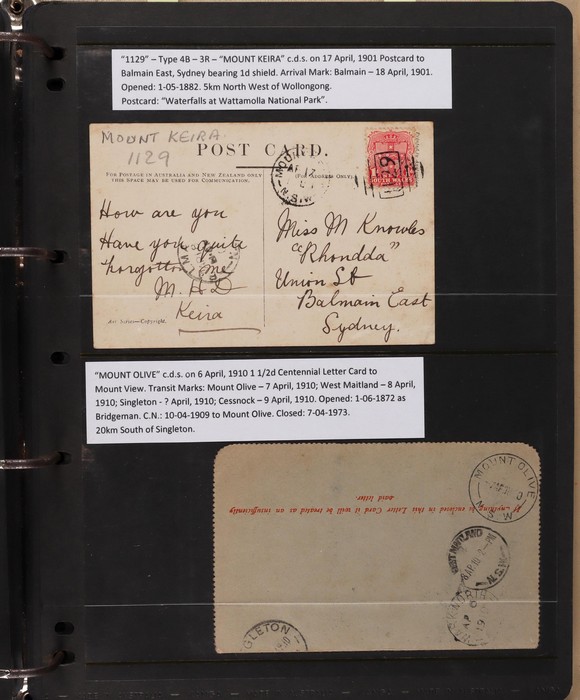 "1129" – Type 4B – 3R – "MOUNT KEIRA" c.d.s. on 17 April, 1901 Postcard to
Balmain East, Sydney bearing 1d shield. Arrival Mark: Balmain – 18 April, 1901.
Opened: 1-05-1882. 5km North West of Wollongong.
Postcard: "Waterfalls at Wattamolla National Park".
MOUNT KEIRA
1129
POST CARD.
FOR POSTAGE IN AUSTRALIA AND NEW ZEALAND ONLY
THIS SPACE MAY BE USED FOR COMMUNICATION.
ADDRESS ONLY
MOUNT
AP 17
N.S.W.
1129
How are you
Have you quite
forgotten me
M. H D
Keira
Art Series—Copyright.
Miss M Knowles
"Rhondda"
Union St
Balmain East
Sydney.
"MOUNT OLIVE" c.d.s. on 6 April, 1910 1 1/2d Centennial Letter Card to
Mount View. Transit Marks: Mount Olive – 7 April, 1910; West Maitland – 8 April,
1910; Singleton - ? April, 1910; Cessnock – 9 April, 1910. Opened: 1-06-1872 as
Bridgeman. C.N.: 10-04-1909 to Mount Olive. Closed: 7-04-1973.
20km South of Singleton.
MOUNT OLIVE
N.S.W.
If anything be enclosed in this Letter Card it will be treated as an insufficiently
paid letter.
WEST MAITLAND
8 AP 10
N.S.W.
GLETON